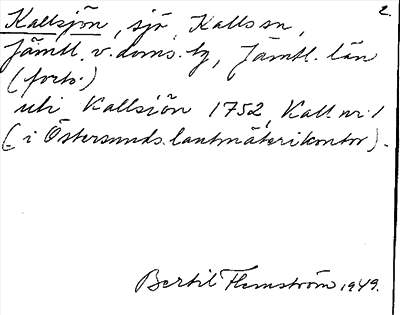 2.
Kallsjön, sjö, Kalls sn,
Jämtl. v. doms. tg, Jämtl. län
(forts.)
uti Kallsiön 1752, Kall nr 1
(i Östersunds lantmäterikontor).
Bertil Flemström 1949.